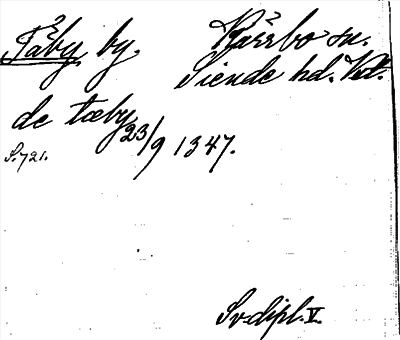 Täby by. Kärrbo sn.
Siende hd. Vstm.
de tæby 23/9 1347.
S. 721.
Sv. dipl. V.